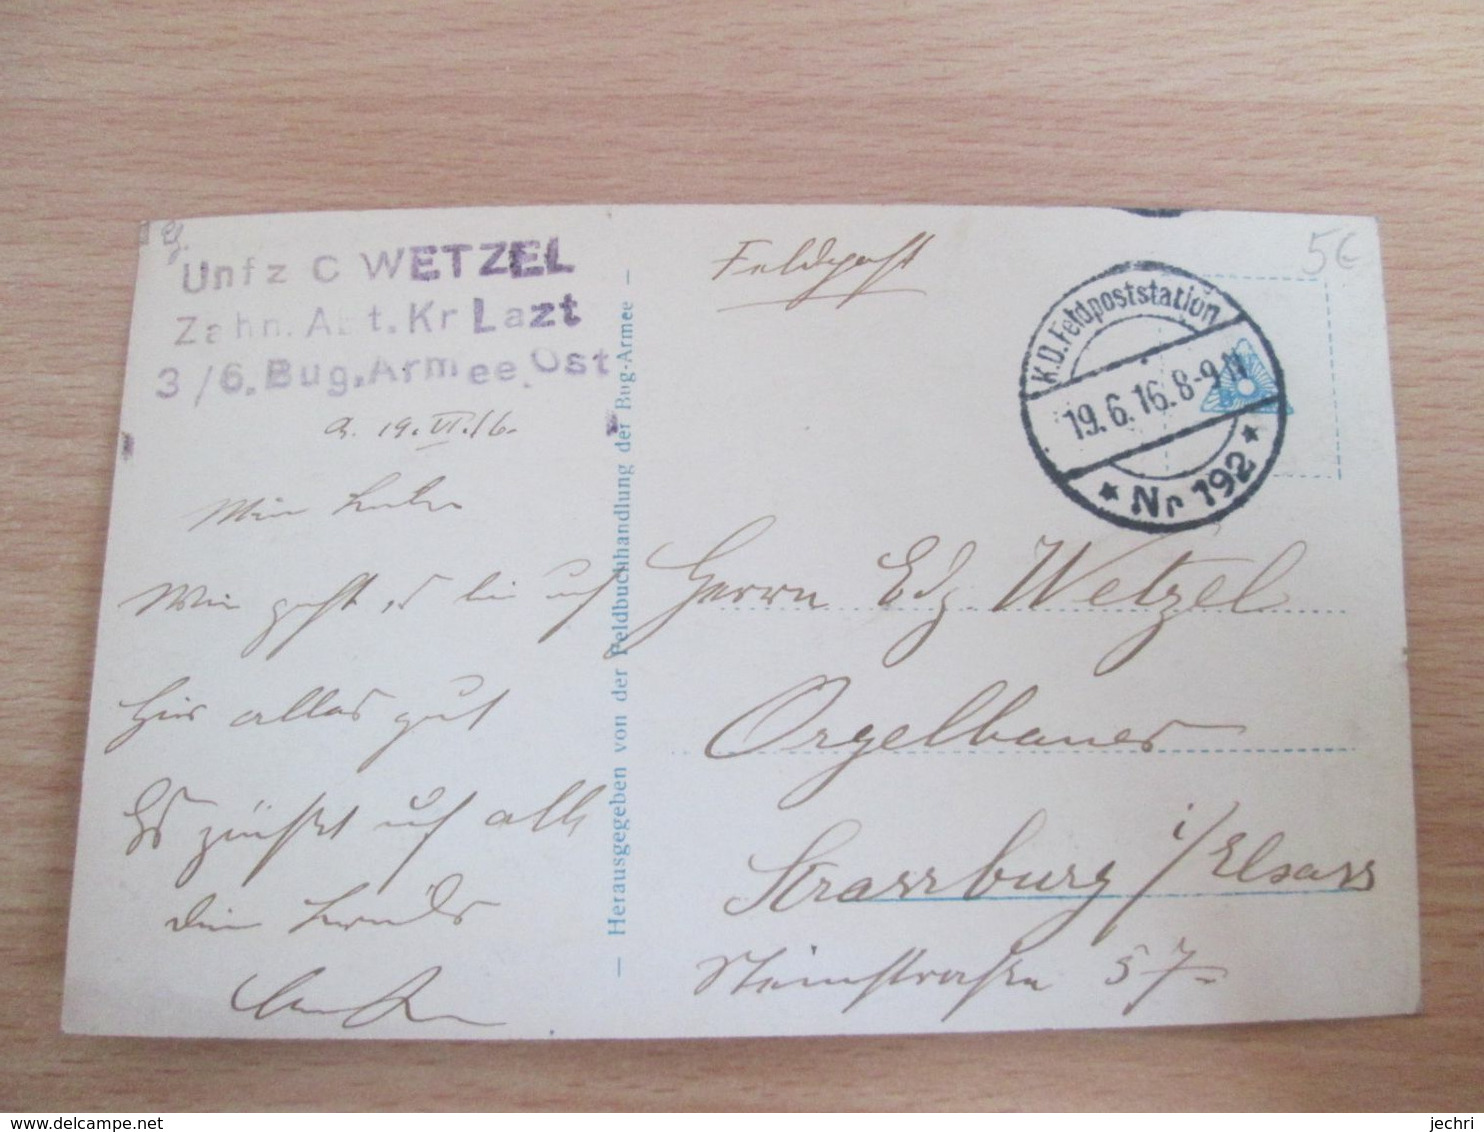 Unfz C WETZEL
Zahn. Abt. Kr Lazt
3/6. Bug. Armee. Ost
19. VI. 16.
Mein Lieber
Mir geht es bis auf
hier alles gut
Es grüßt auf alle
dein
Herausgegeben von der Feldbuchhandlung der Bug-Armee
Feldpost
5€
K.D. Feldpoststation
19. 6. 16. 8-9 N
* Nr 192 *
Herrn Edg Wetzel
Orgelbauer
Strassburg i/Elsass
Steinstraße 57
delcampe.net
jechri